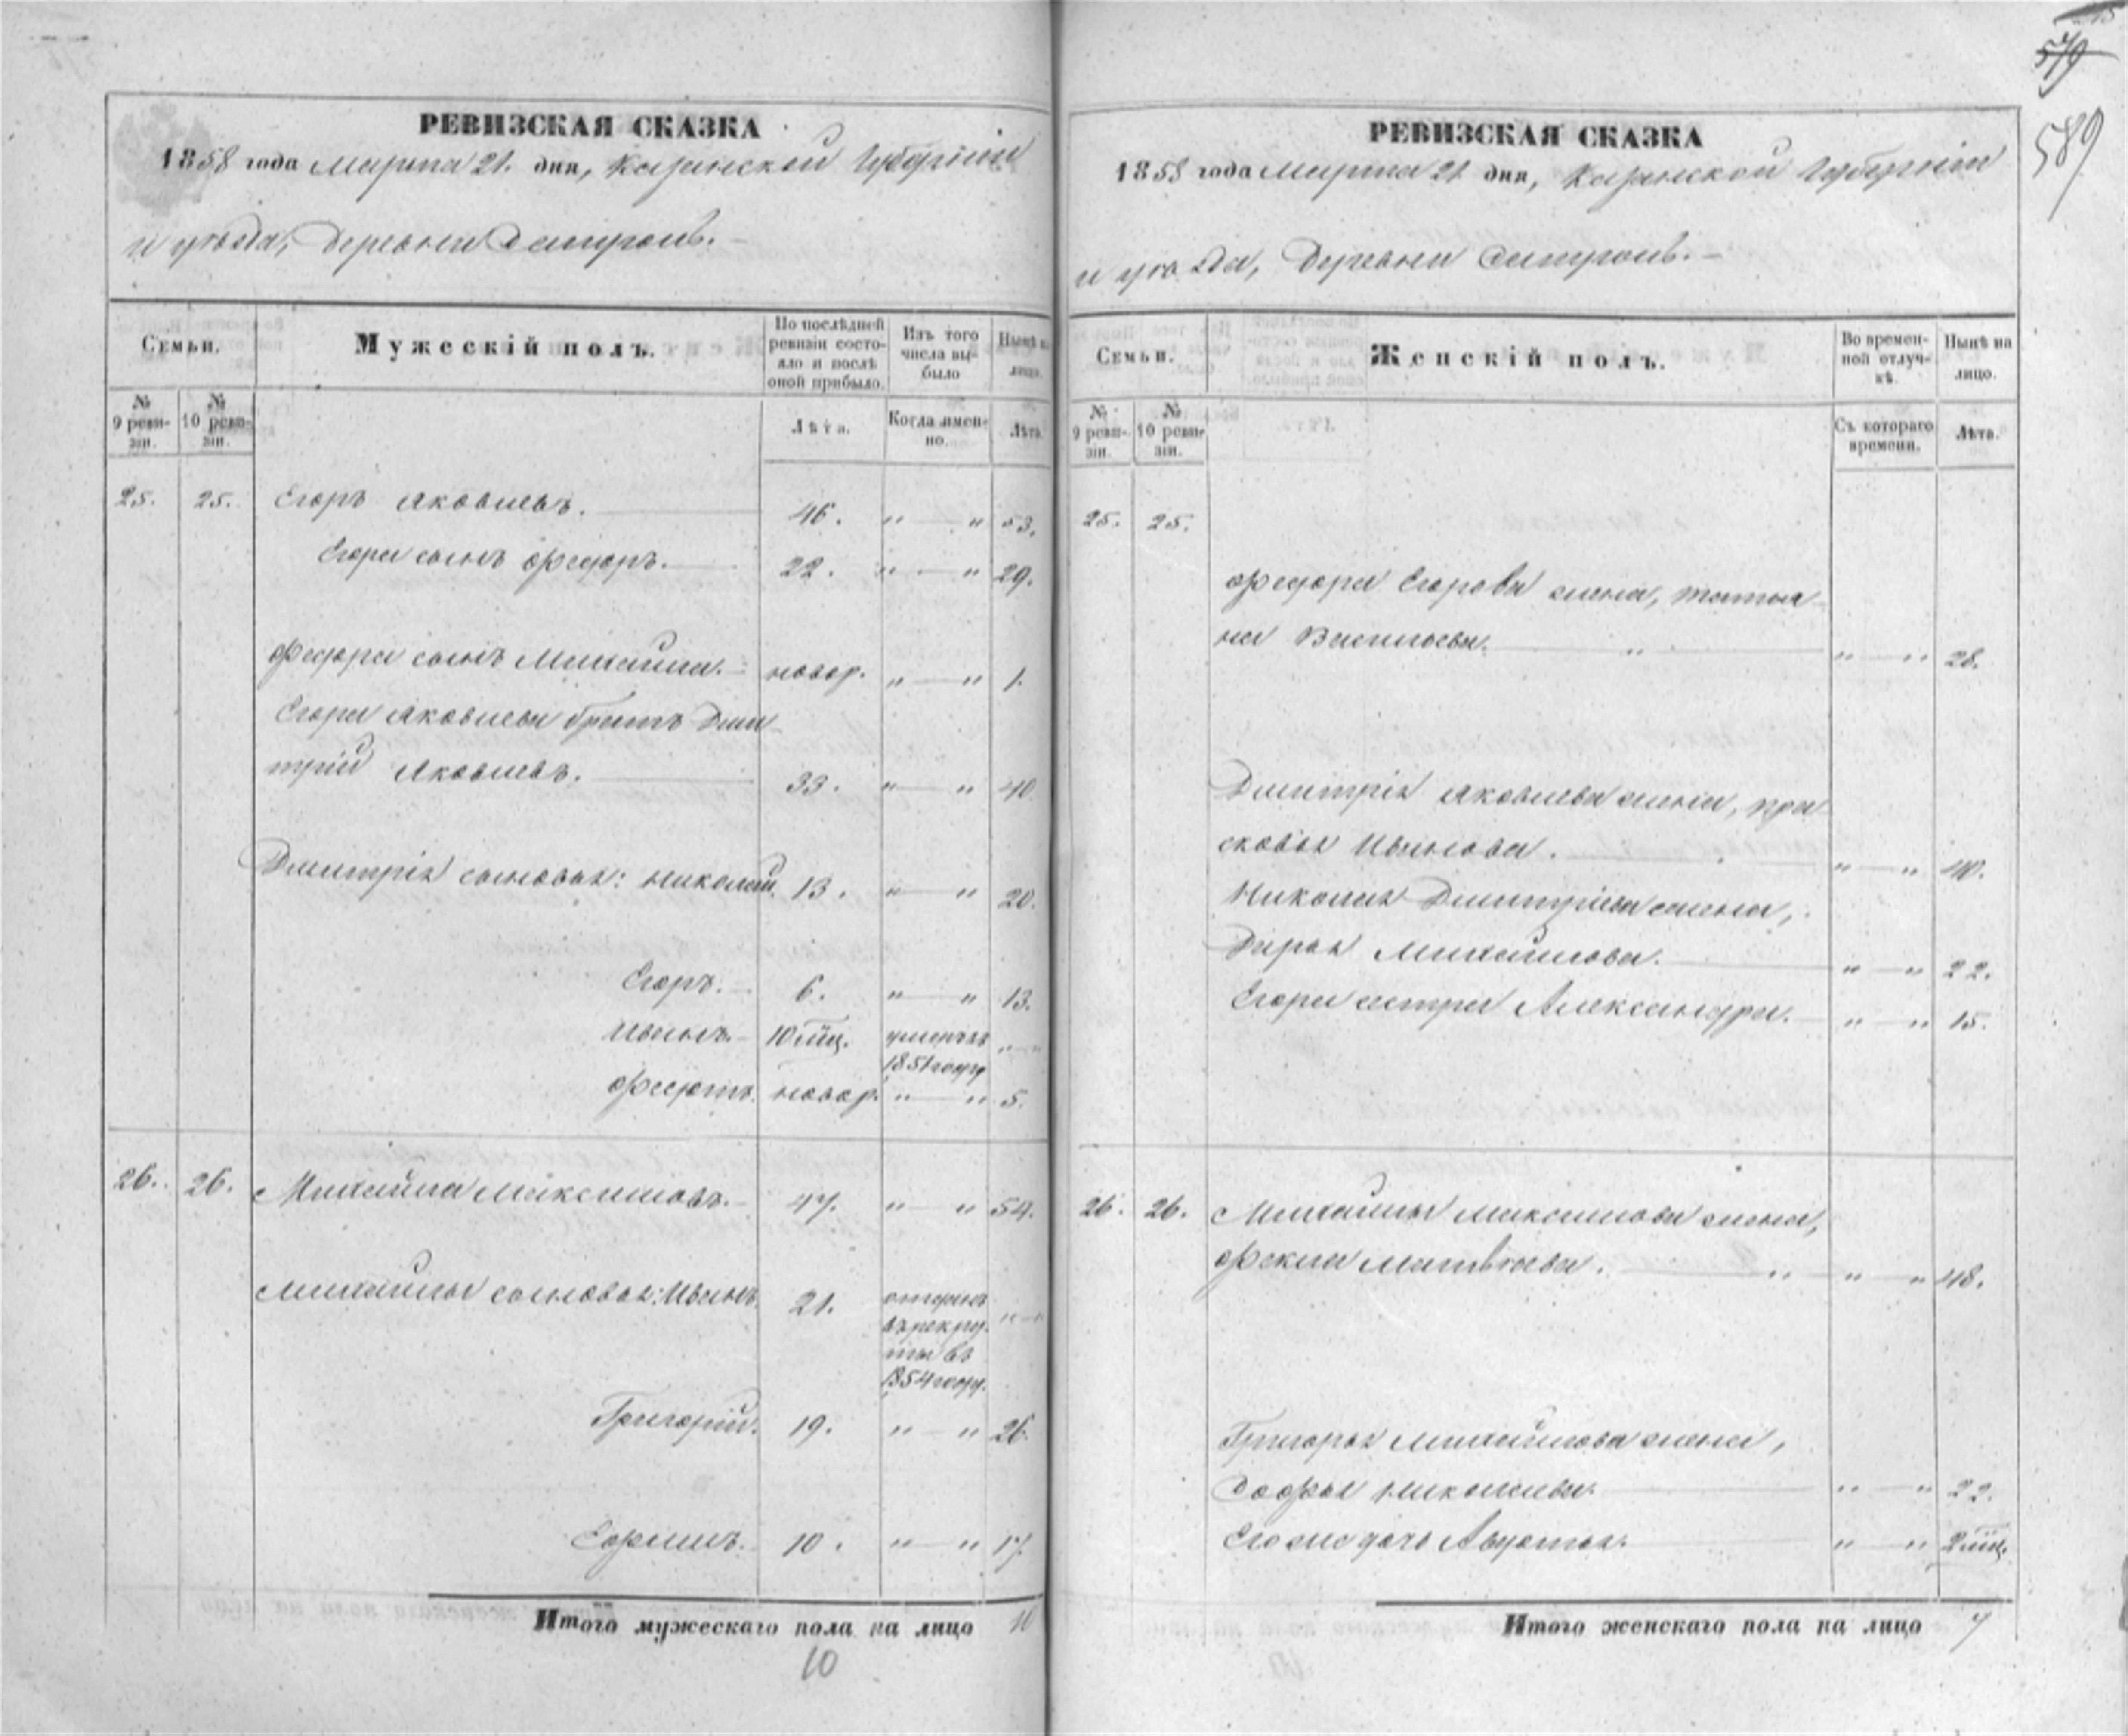 РЕВИЗСКАЯ СКАЗКА
1858 года Марта 21. дня, Казанской Губерніи
и уѣзда, деревни
Семьи.
Мужескій полъ.
По послѣдней ревизіи состояло и послѣ оной прибыло.
Изъ того числа выбыло
Нынѣ на лицо.
№ 9 ревизіи.
№ 10 ревизіи.
Лѣта.
Когда именно.
Лѣта.
25. 25. Егоръ Яковлевъ. 46. " — " 53.
Егора сынъ Федоръ. 22. " — " 29.
Федора сынъ Михайла. новор. " — " 1.
Егора Яковлева братъ Дми
трій Яковлевъ. 33. " — " 40.
Дмитрія сыновья: Николай. 13. " — " 20.
Егоръ. 6. " — " 13.
Иванъ. 10 мц. умеръ въ 1851 году " — "
Федотъ. новор. " — " 5.
26. 26. Михайла Максимовъ. 47. " — " 54.
Михайлы сыновья: Иванъ. 21. отданъ " — "
въ рекру
ты въ
1854 году.
Григорій. 19. " — " 26.
Ефимъ. 10. " — " 17.
Итого мужескаго пола на лицо 10
10
579
589
РЕВИЗСКАЯ СКАЗКА
1858 года Марта 21 дня, Казанской Губерніи
и уѣзда, деревни
Семьи.
Женскій полъ.
Во временной отлучкѣ.
Нынѣ на лицо.
№ 9 ревизіи.
№ 10 ревизіи.
Съ котораго времени.
Лѣта.
25. 25.
Федора Егорова жена, Татья
на Васильева. " — " 28.
Дмитрія Яковлева жена, Пра
сковья Иванова. " — " 40.
Николая Дмитріева жена,
Дарья Михайлова. " — " 22.
Егора сестра Александра. " — " 15.
26. 26. Михайлы Максимова жена,
Фекла Матвѣева. " — " 48.
Григорья Михайлова жена,
Софья Николаева. " — " 22.
Его же дочь Авдотья. " — " 2 мц.
Итого женскаго пола на лицо 7